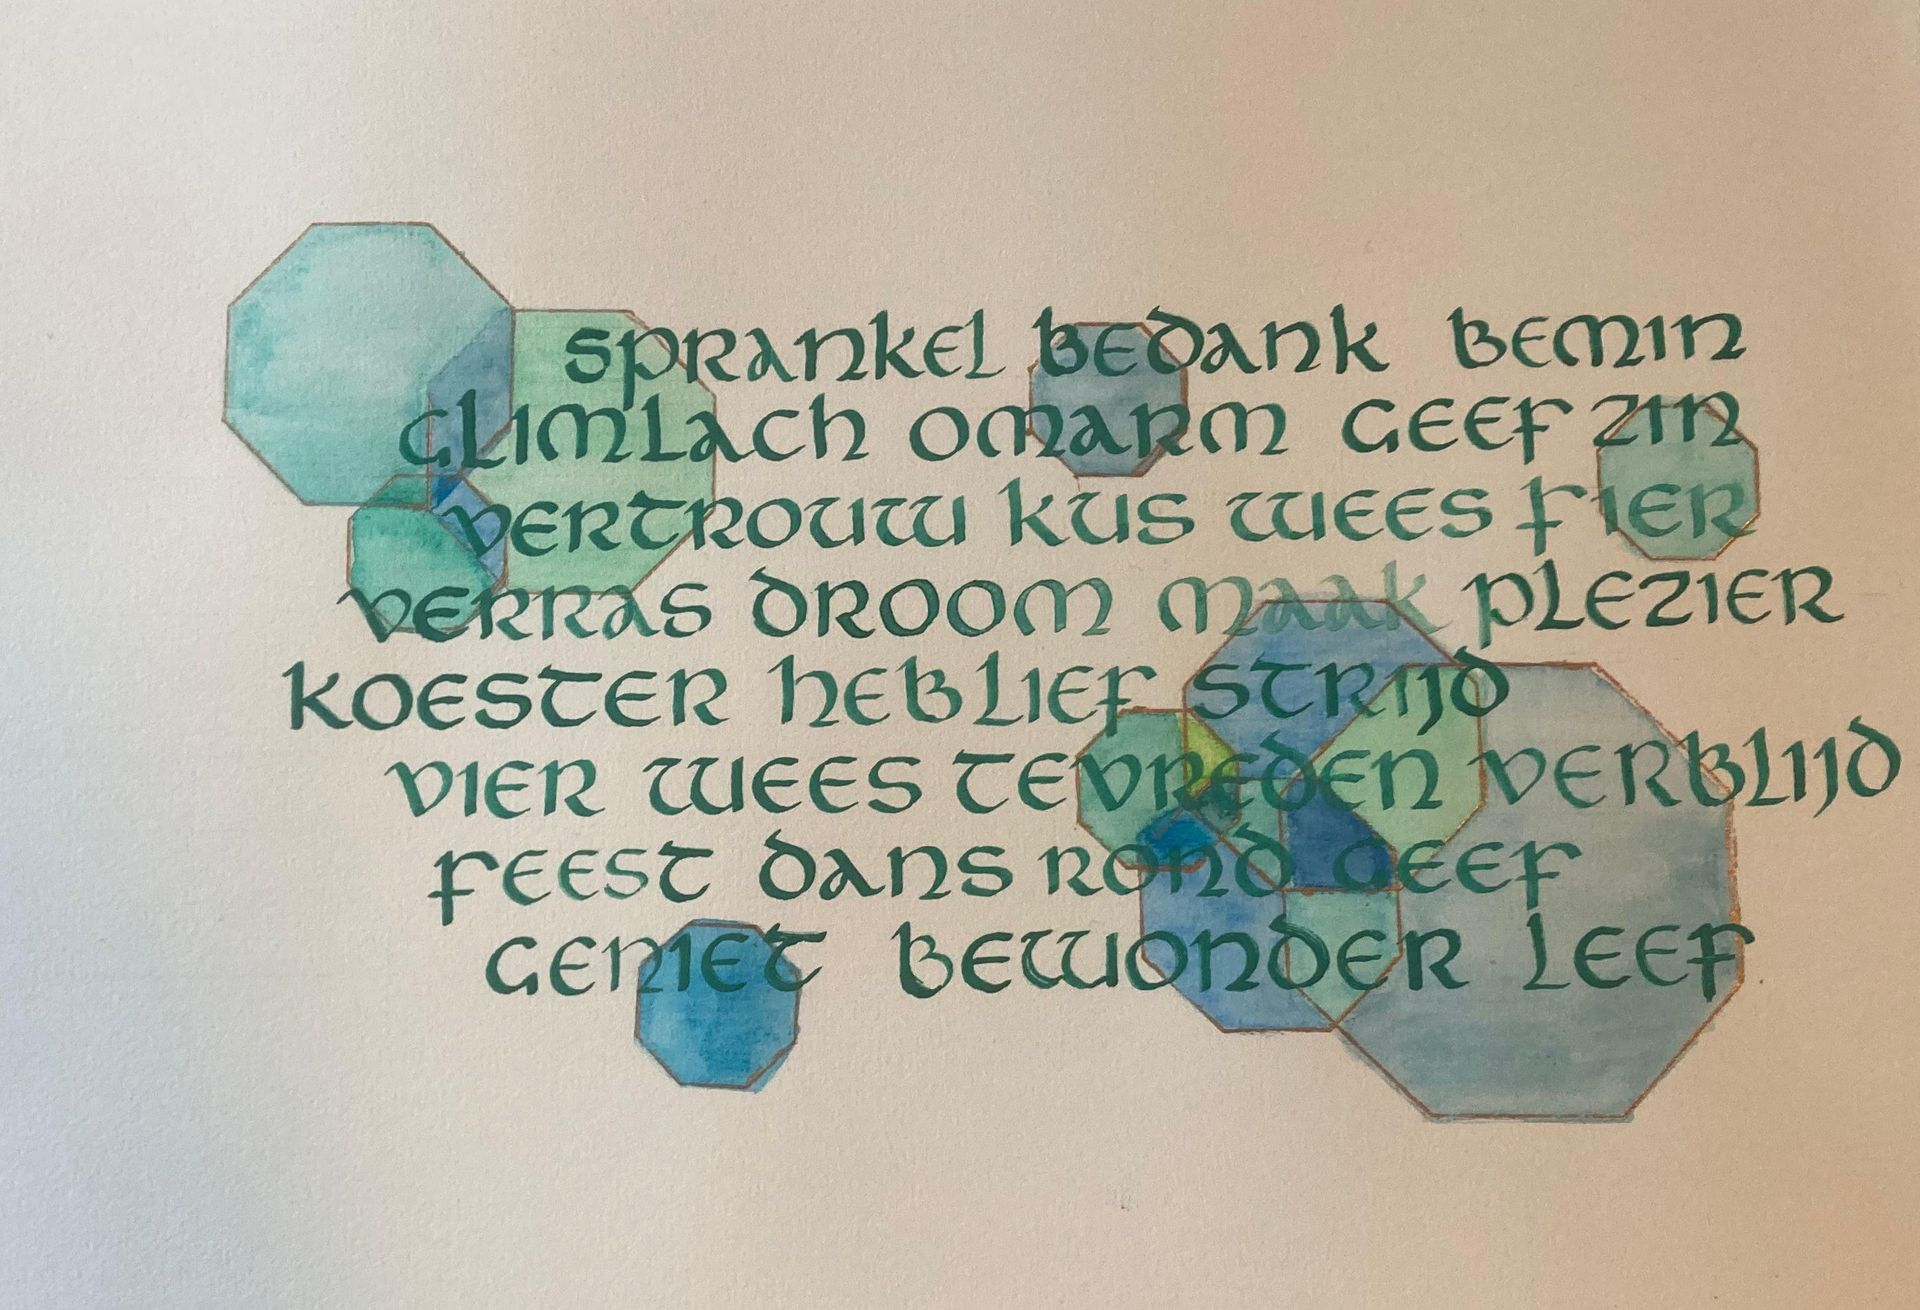 sprankel bedank bemin
glimlach omarm geef zin
vertrouw kus wees fier
verras droom maak plezier
koester heb lief strijd
vier wees tevreden verblijd
feest dans rond geef
geniet bewonder leef